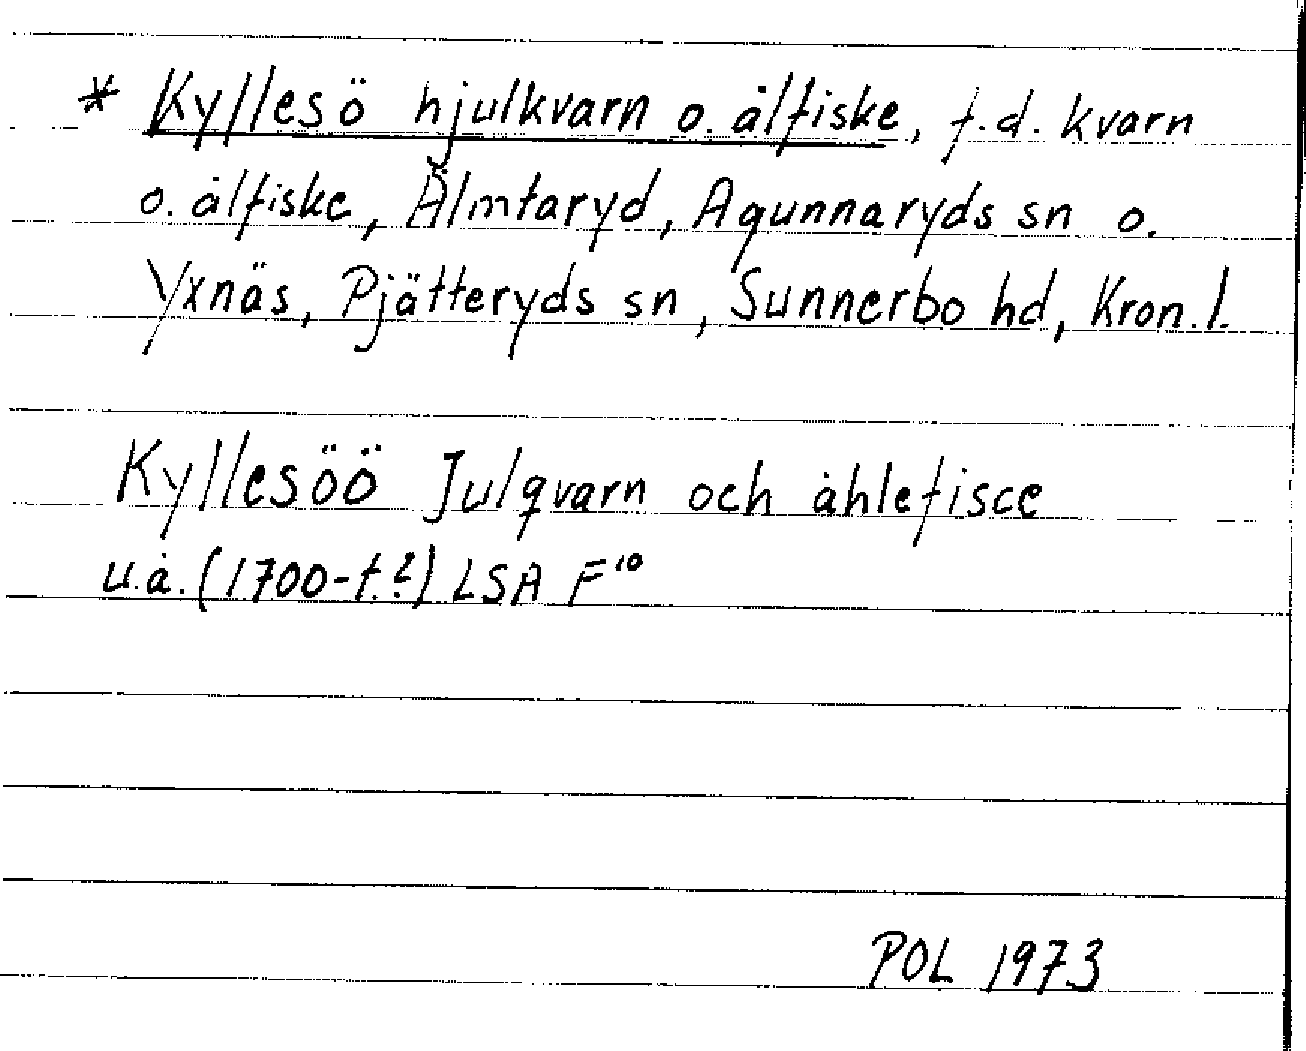 * Kyllesö hjulkvarn o. ålfiske, f.d. kvarn
o. ålfiske, Älmtaryd, Agunnaryds sn o.
Yxnäs, Pjätteryds sn, Sunnerbo hd, Kron.l.
Kyllesöö Julqvarn och åhlefisce
u.å. (1700-t.?) LSA F¹⁰
POL 1973